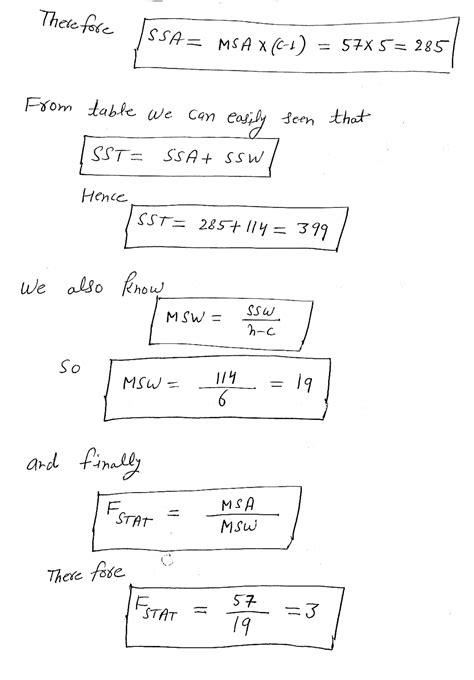 Therefore
SSA = MSA × (c-1) = 57 × 5 = 285
From table we can easily seen that
SST = SSA + SSW
Hence
SST = 285 + 114 = 399
We also know
MSW = SSW / n-c
So
MSW = 114 / 6 = 19
and finally
F_STAT = MSA / MSW
There fore
F_STAT = 57 / 19 = 3